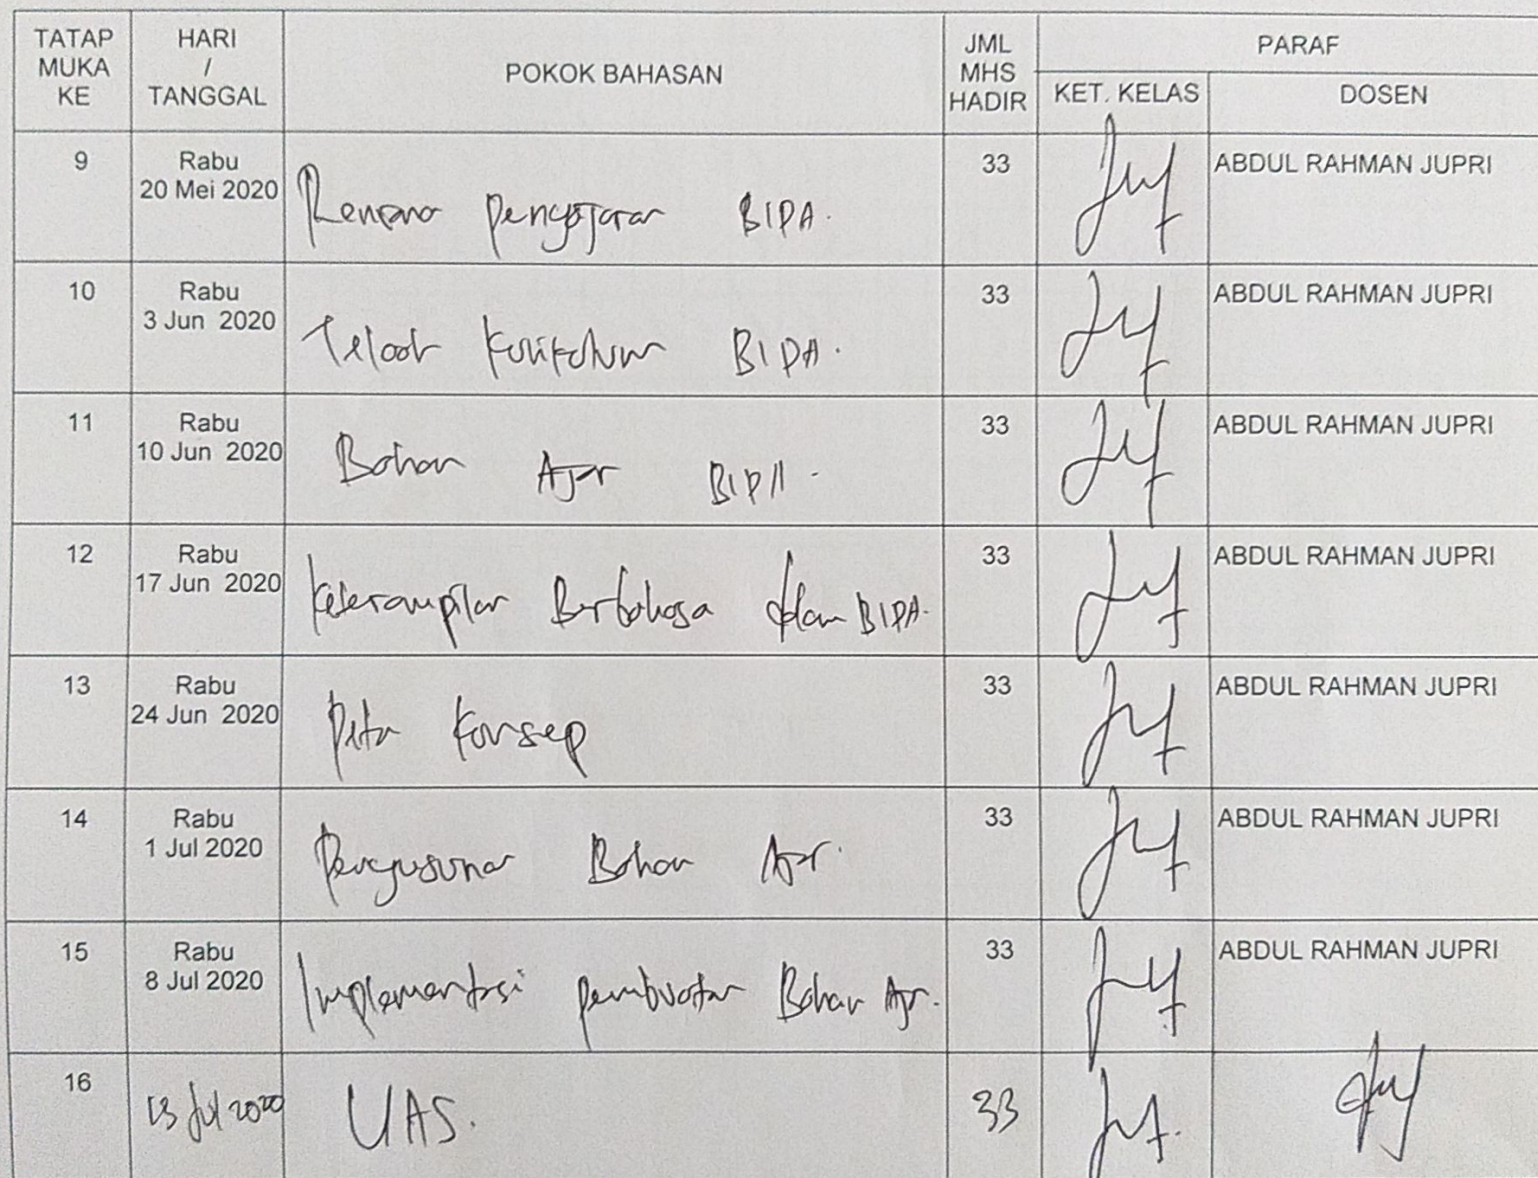 TATAP MUKA KE
HARI / TANGGAL
POKOK BAHASAN
JML MHS HADIR
PARAF
KET. KELAS
DOSEN
9 Rabu 20 Mei 2020 Rencana Pengajaran BIPA. 33 ABDUL RAHMAN JUPRI
10 Rabu 3 Jun 2020 Telaah Kurikulum BIPA. 33 ABDUL RAHMAN JUPRI
11 Rabu 10 Jun 2020 Bahan Ajar BIPA. 33 ABDUL RAHMAN JUPRI
12 Rabu 17 Jun 2020 Keterampilan Berbahasa dalam BIPA. 33 ABDUL RAHMAN JUPRI
13 Rabu 24 Jun 2020 Peta Konsep 33 ABDUL RAHMAN JUPRI
14 Rabu 1 Jul 2020 Penyusunan Bahan Ajar. 33 ABDUL RAHMAN JUPRI
15 Rabu 8 Jul 2020 Implementasi pembuatan Bahan Ajar. 33 ABDUL RAHMAN JUPRI
16 13 Jul 2020 UAS. 33